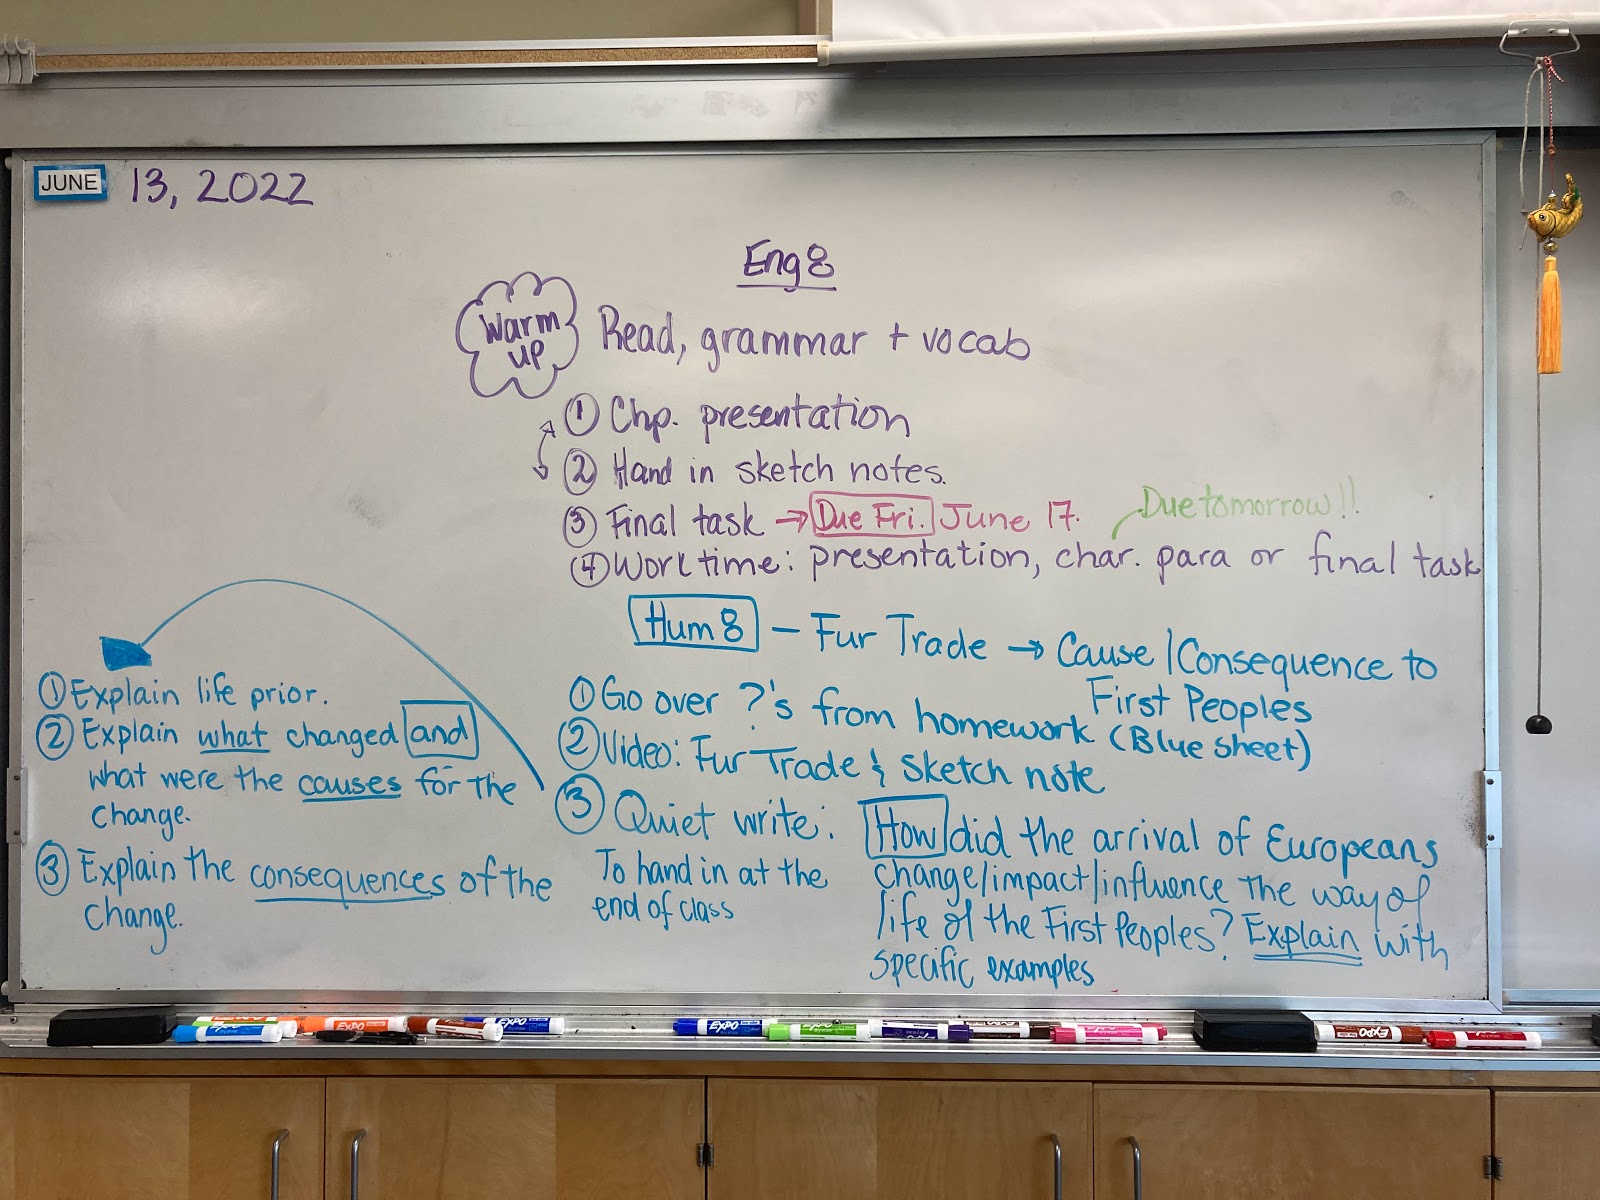 JUNE 13, 2022
Eng 8
Warm up
Read, grammar + vocab
① Chp. presentation
② Hand in sketch notes.
③ Final task → Due Fri. June 17.
Due tomorrow!!
④ Work time: presentation, char. para or final task
Hum 8 – Fur Trade → Cause/Consequence to
First Peoples
① Go over ?'s from homework (Blue sheet)
② Video: Fur Trade & sketch note
③ Quiet write:
To hand in at the
end of class
How did the arrival of Europeans
change/impact/influence the way of
life of the First Peoples? Explain with
specific examples
① Explain life prior.
② Explain what changed and
what were the causes for the
change.
③ Explain the consequences of the
change.
EXPO
EXPO
EXPO
EXPO
EXPO
EXPO